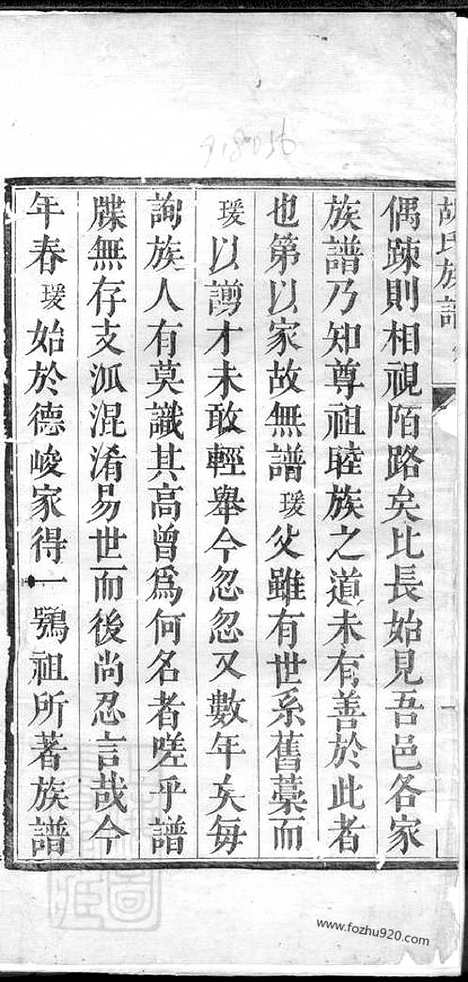 胡氏族譜
偶踈則相視陌路矣比長始見吾邑各家
族譜乃知尊祖睦族之道未有善於此者
也第以家故無譜瑗父雖有世系舊藁而
瑗以謭才未敢輕舉今忽忽又數年矣每
詢族人有莫識其高曾爲何名者嗟乎譜
牒無存支泒混淆易世而後尚忍言哉今
年春瑗始於德峻家得一鶚祖所著族譜
918036
www.fozhu920.com